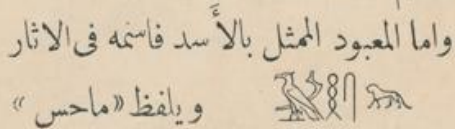 واما المعبود الممثل بالأَسد فاسمه فى الاثار
ويلفظ «ماحس»